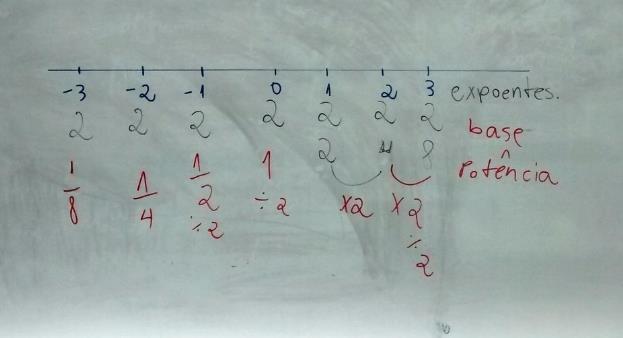 -3 -2 -1 0 1 2 3 expoentes.
2 2 2 2 2 2 2 base
1/8 1/4 1/2 1 2 4 8 potência
÷2 ÷2 x2 x2
÷2